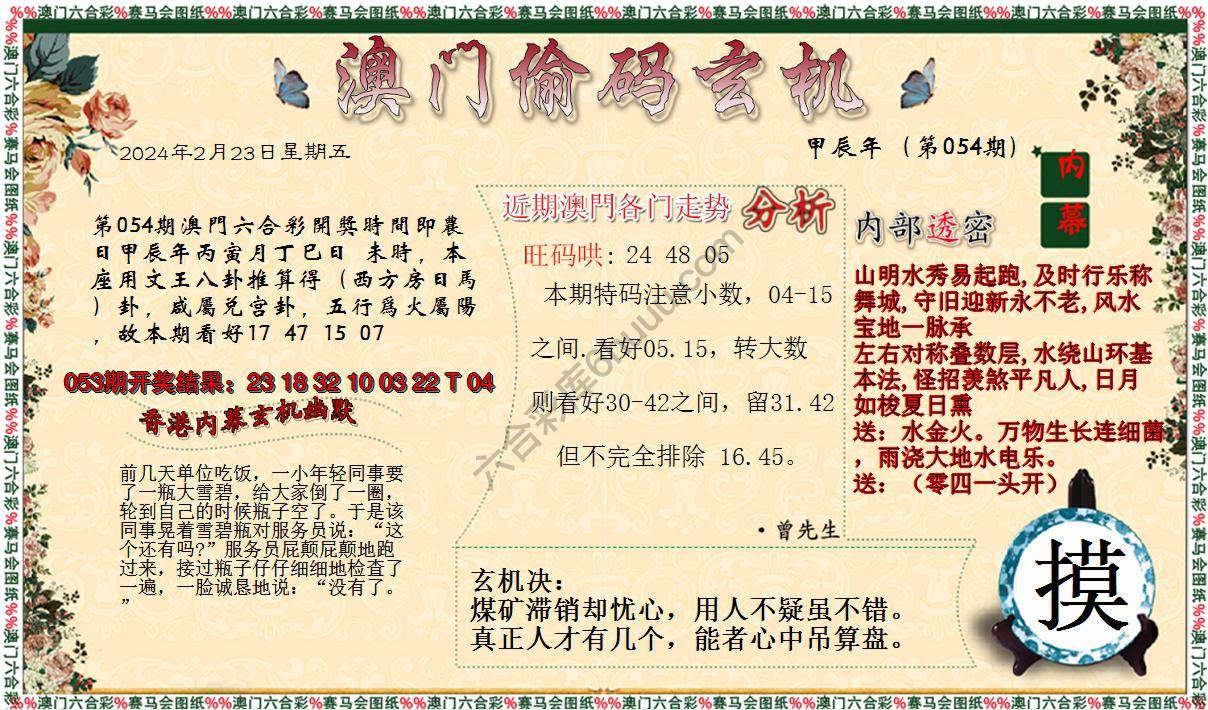 %%澳门六合彩%赛马会图纸%%澳门六合彩%赛马会图纸%%澳门六合彩%赛马会图纸%%澳门六合彩%赛马会图纸%%澳门六合彩%赛马会图纸%%
澳门偷码玄机
2024年2月23日星期五
甲辰年（第054期）
内
幕
第054期澳門六合彩開獎時間即農
日甲辰年丙寅月丁巳日 未時，本
座用文王八卦推算得（西方房日馬
）卦，咸屬兑宫卦，五行爲火屬陽
，故本期看好17 47 15 07
053期开奖结果：23 18 32 10 03 22 T 04
香港内幕玄机幽默
前几天单位吃饭，一小年轻同事要
了一瓶大雪碧，给大家倒了一圈，
轮到自己的时候瓶子空了。于是该
同事晃着雪碧瓶对服务员说：“这
个还有吗?”服务员屁颠屁颠地跑
过来，接过瓶子仔仔细细地检查了
一遍，一脸诚恳地说：“没有了。
”
近期澳門各门走势 分析
旺码哄: 24 48 05
本期特码注意小数，04-15
之间.看好05.15，转大数
则看好30-42之间，留31.42
但不完全排除 16.45。
·曾先生
内部透密
山明水秀易起跑,及时行乐称
舞城,守旧迎新永不老,风水
宝地一脉承
左右对称叠数层,水绕山环基
本法,怪招羡煞平凡人,日月
如梭夏日熏
送：水金火。万物生长连细菌
，雨浇大地水电乐。
送：（零四一头开）
玄机决：
煤矿滞销却忧心，用人不疑虽不错。
真正人才有几个，能者心中吊算盘。
摸
%%澳门六合彩%赛马会图纸%%澳门六合彩%赛马会图纸%%澳门六合彩%赛马会图纸%%澳门六合彩%赛马会图纸%%澳门六合彩%赛马会图纸%%